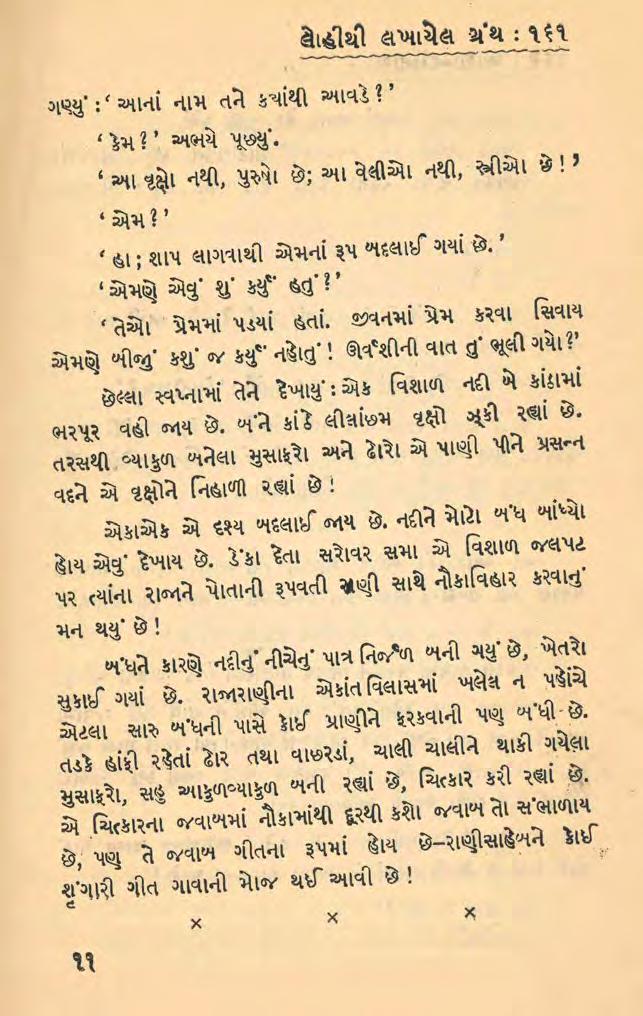 લોહીથી લખાયેલ ગ્રંથ : ૧૬૧
ગણ્યું : ‘ આનાં નામ તને ક્યાંથી આવડે ? ’
‘ કેમ ? ’ અભયે પૂછ્યું.
‘ આ વૃક્ષો નથી, પુરુષો છે; આ વેલીઓ નથી, સ્ત્રીઓ છે ! ’
‘ એમ ? ’
‘ હા ; શાપ લાગવાથી એમનાં રૂપ બદલાઈ ગયાં છે. ’
‘ એમણે એવું શું કર્યું હતું ? ’
‘ તેઓ પ્રેમમાં પડયાં હતાં. જીવનમાં પ્રેમ કરવા સિવાય
એમણે બીજું કશું જ કર્યું નહોતું ! ઊર્વશીની વાત તું ભૂલી ગયો ?’
છેલ્લા સ્વપ્નામાં તેને દેખાયું : એક વિશાળ નદી બે કાંઠામાં
ભરપૂર વહી જાય છે. બંને કાંઠે લીલાંછમ વૃક્ષો ઝૂકી રહ્યાં છે.
તરસથી વ્યાકુળ બનેલા મુસાફરો અને ઢોરો એ પાણી પીને પ્રસન્ન
વદને એ વૃક્ષોને નિહાળી રહ્યાં છે !
એકાએક એ દશ્ય બદલાઈ જાય છે. નદીને મોટો બંધ બાંધ્યો
હોય એવું દેખાય છે. ડંકા દેતા સરોવર સમા એ વિશાળ જલપટ
પર ત્યાંના રાજાને પોતાની રૂપવતી રાણી સાથે નૌકાવિહાર કરવાનું
મન થયું છે !
બંધને કારણે નદીનું નીચેનું પાત્ર નિર્જળ બની ગયું છે, ખેતરો
સુકાઈ ગયાં છે. રાજારાણીના એકાંત વિલાસમાં ખલેલ ન પહોંચે
એટલા સારુ બંધની પાસે કોઈ પ્રાણીને ફરકવાની પણ બંધી છે.
તડકે હાંફી રહેતાં ઢોર તથા વાછરડાં, ચાલી ચાલીને થાકી ગયેલા
મુસાફરો, સહુ આકુળવ્યાકુળ બની રહ્યાં છે, ચિત્કાર કરી રહ્યાં છે.
એ ચિત્કારના જવાબમાં નૌકામાંથી દૂરથી કશો જવાબ તો સંભાળાય
છે, પણ તે જવાબ ગીતના રૂપમાં હોય છે–રાણીસાહેબને કોઈ
શૃંગારી ગીત ગાવાની મોજ થઈ આવી છે !
× × ×
૧૧